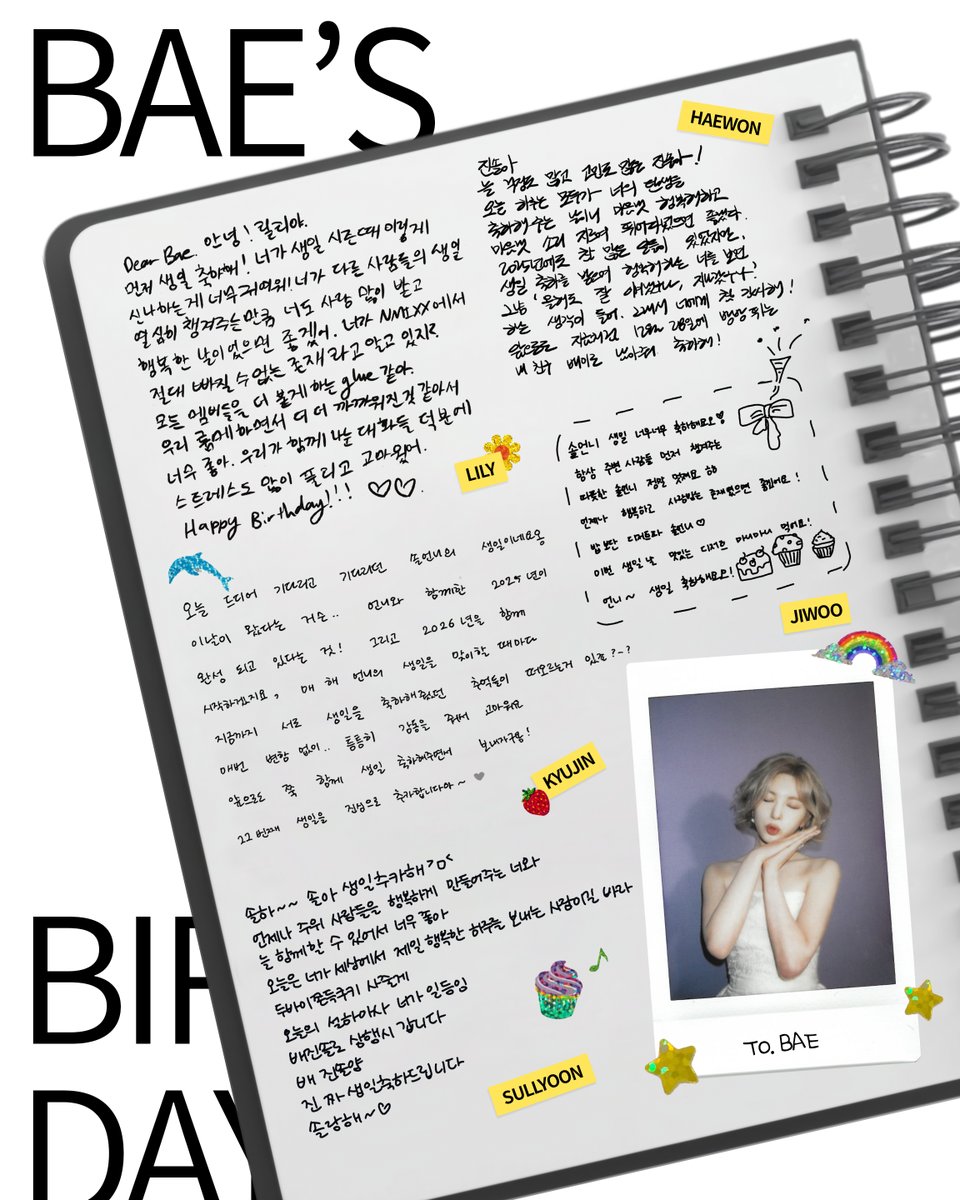 BAE'S
HAEWON
진솔아
늘 걱정도 많고 고민도 많은 진솔아!
오늘 하루는 모두가 너의 탄생을
축하해주는 날이니 마음껏 행복해하고
마음껏 소리 지르며 뛰어다녔으면 좋겠다.
2025년에도 참 많은 일들이 있었지만,
생일 축하를 받으며 행복해하는 너를 보면
그냥 '올해도 잘
하는 생각이 들어. 그래서 너에게 참 고마워!
앞으로도 12월 28일에 방방 뛰는
내 친구 배이로 남아줘 축하해!
Dear Bae. 안녕! 릴리야.
먼저 생일 축하해! 너가 생일 시즌 때 이렇게
신나하는게 너무 귀여워! 너가 다른 사람들의 생일
열심히 챙겨주는만큼 너도 사랑 많이 받고
행복한 날이었으면 좋겠어. 너가 NMIXX에서
절대 빠질 수 없는 존재라고 알고 있지?
모든 멤버들을 더 붙게 하는 glue 같아.
우리 룸메 하면서 더 더 가까워진것 같아서
너무 좋아. 우리가 함께 나눈 대화들 덕분에
스트레스도 많이 풀리고 고마웠어.
Happy Birthday!!! ♡♡.
LILY
솔언니 생일 너무너무 축하해요♡
항상 주변 사람들 먼저 챙겨주는
따뜻한 솔언니 정말 멋져요 ㅎㅎ
언제나 행복하고 사랑받는 존재였으면 좋겠어요!
밥보단 디저트파 솔언니♡
이번 생일날 맛있는 디저트 마니마니 먹어요!
언니~ 생일 축하해요!
JIWOO
오늘 드디어 기다리고 기다리던 솔언니의 생일이네요옹
이날이 왔다는 거슨.. 언니와 함께한 2025년이
완성 되고 있다는 것! 그리고 2026년을 함께
시작하겠지요, 매 해 언니의 생일을 맞이할 때마다
지금까지 서로 생일을 축하해줬던 추억들이 떠오르는거 있죠?-?
매번 변함 없이.. 틈틈히 감동을 줘서 고마워요
앞으로도 쭉 함께 생일 축하해주면서 보내자구용!
22번째 생일을 진심으로 추카합니다아~ ♥
KYUJIN
솔하~~ 솔아 생일추카해 >o<
언제나 주위 사람들을 행복하게 만들어주는 너와
늘 함께할 수 있어서 너무 좋아
오늘은 너가 세상에서 제일 행복한 하루를 보내는 사람이길 바라
두바이쫀득쿠키 사줄게
오늘의 설하아사 너가 일등임
배진솔로 삼행시 갑니다
배 진솔양
진 짜 생일축하드립니다
솔랑해~♡
SULLYOON
TO. BAE
BIR
DAY